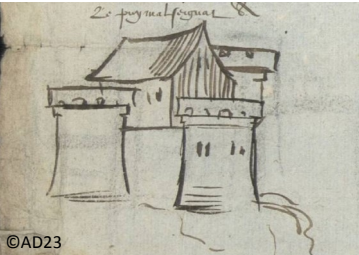 Le puy malseignat
©AD23